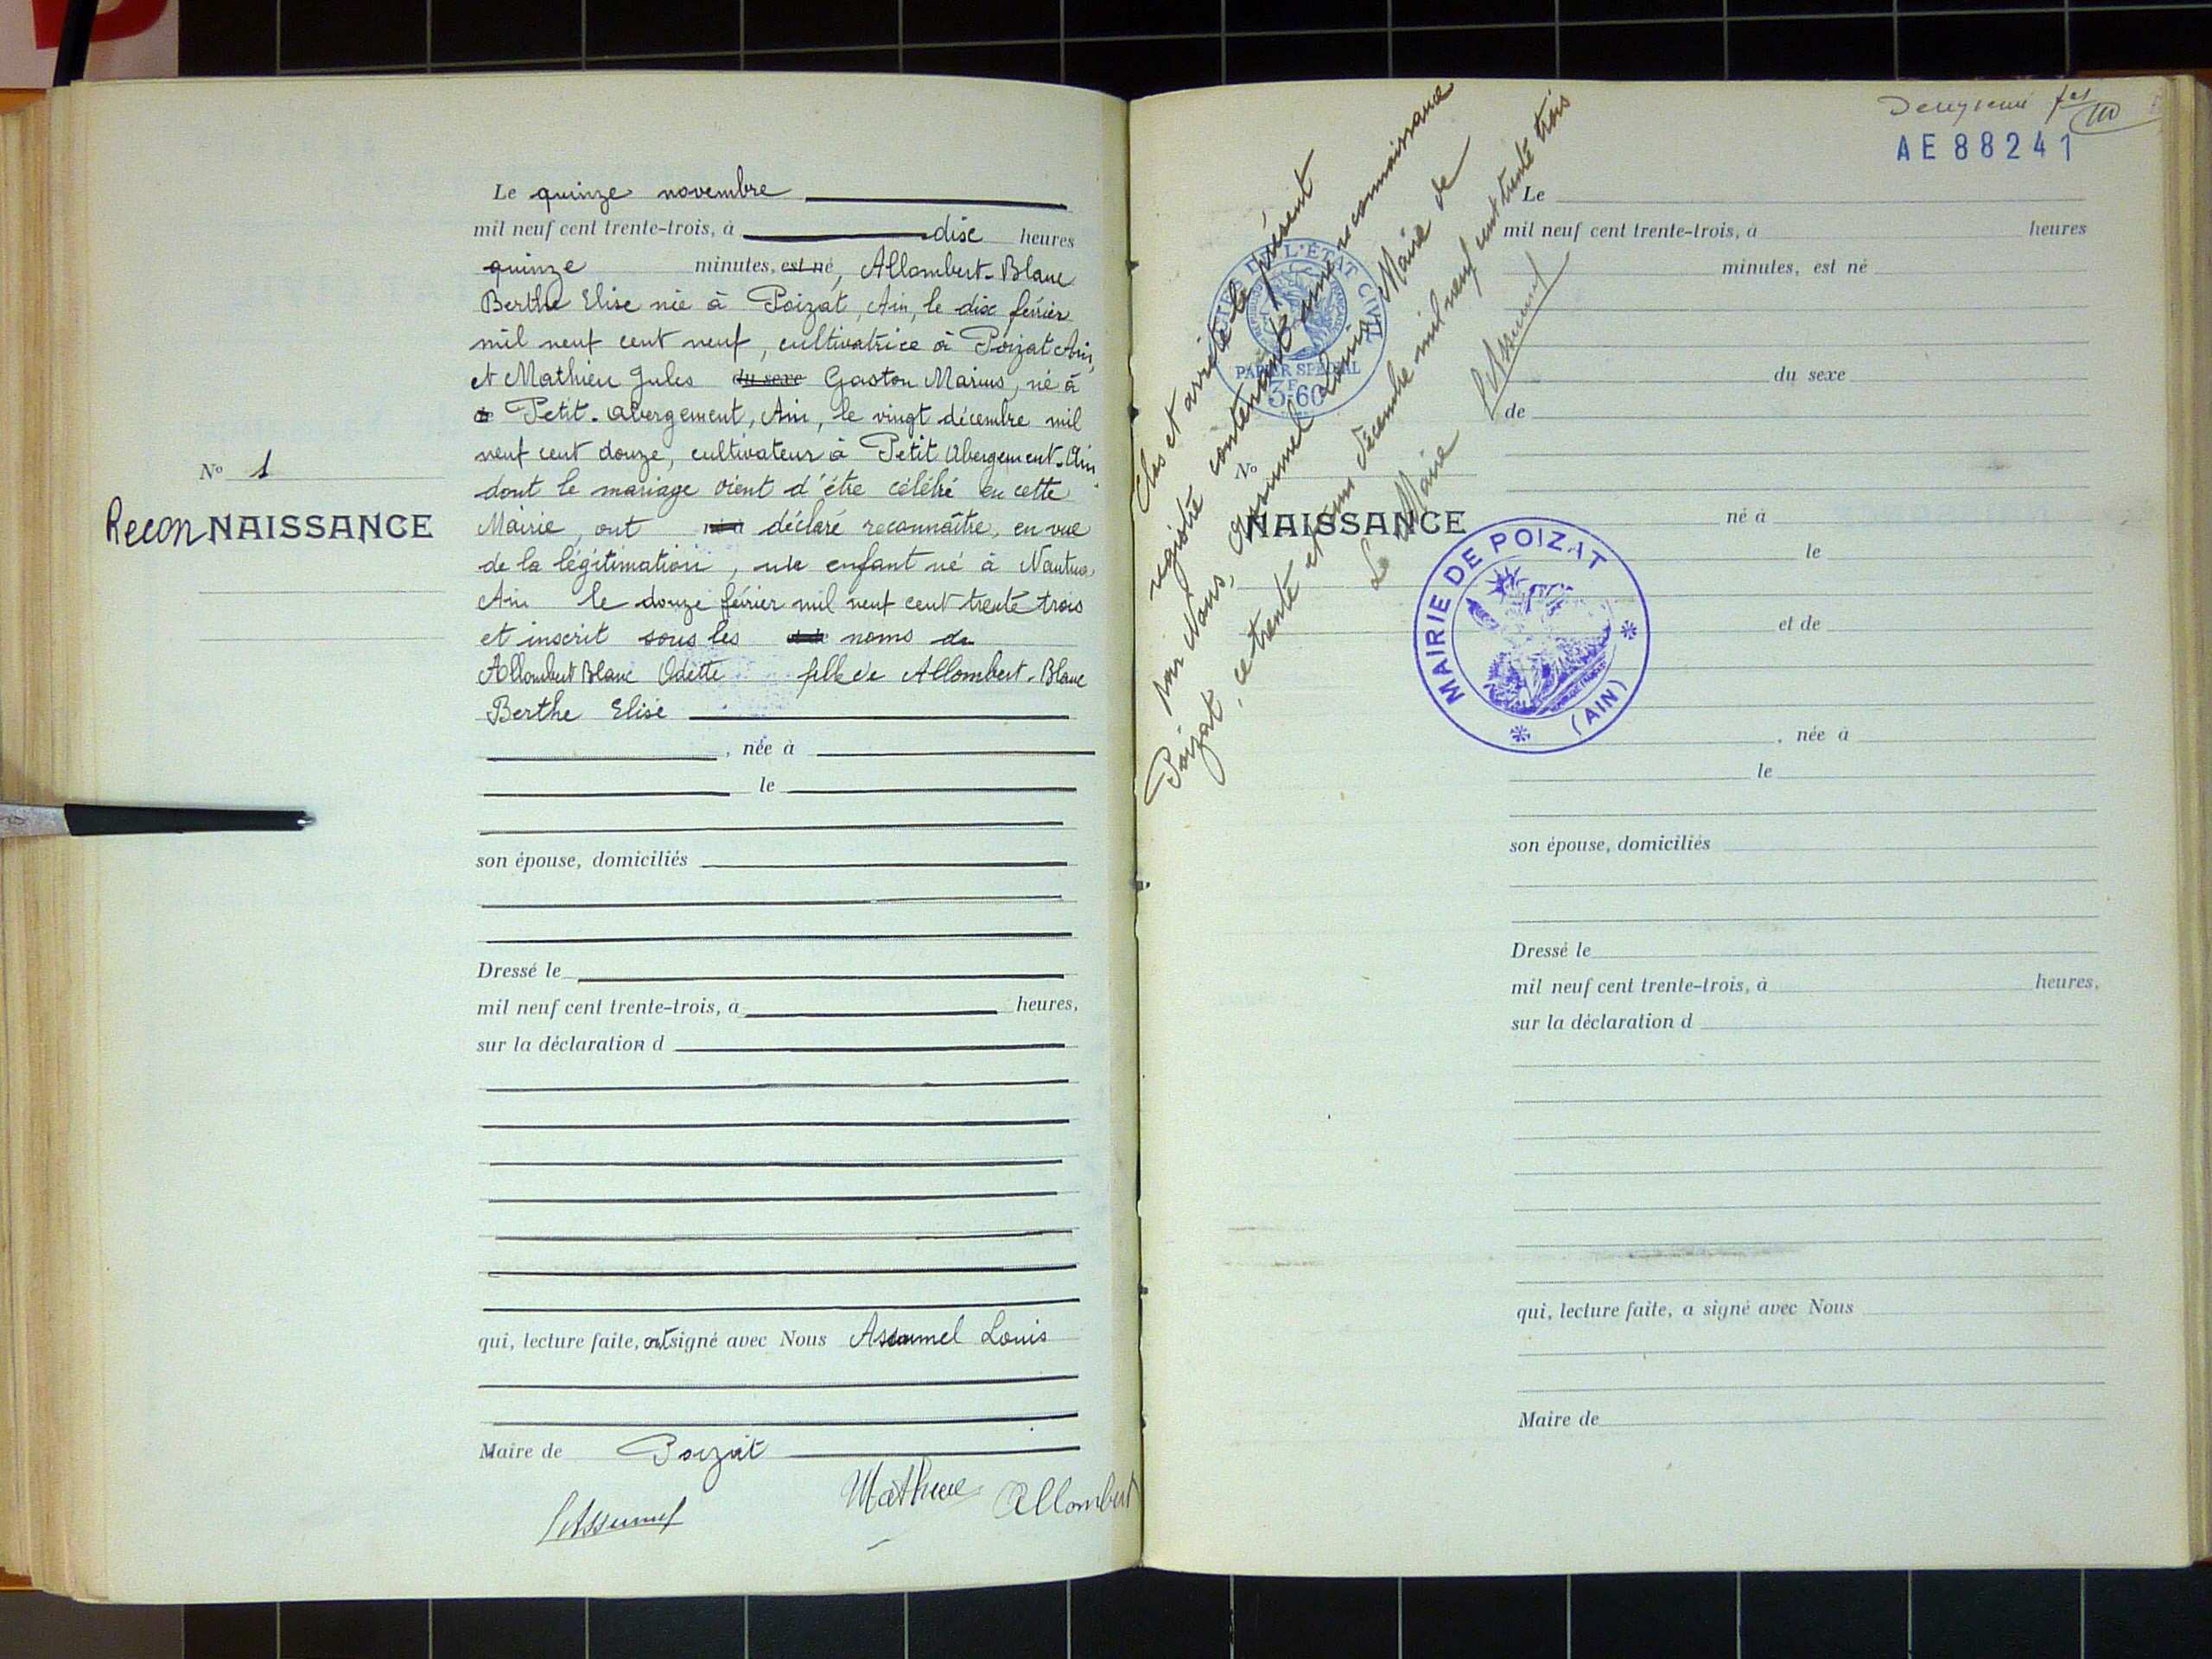 Le quinze novembre
mil neuf cent trente-trois, à dix heures
quinze minutes, est né, Allombert-Blanc
Berthe Elise née à Poizat, Ain, le dix février
mil neuf cent neuf, cultivatrice à Poizat Ain,
et Mathieu Jules du sexe Gaston Marius, né à
à Petit-Abergement, Ain, le vingt décembre mil
neuf cent douze, cultivateur à Petit Abergement-Ain,
dont le mariage vient d'être célébré en cette
Mairie, ont né à déclaré reconnaître, en vue
de la légitimation, un enfant né à Nantua
Ain le douze février mil neuf cent trente trois
et inscrit sous les et de noms de
Allombert Blanc Odette fille de Allombert-Blanc
Berthe Elise
, née à
le
son épouse, domiciliés
Dressé le
mil neuf cent trente-trois, à heures,
sur la déclaration d
qui, lecture faite, ont signé avec Nous Assumel Louis
Maire de Poizat
LAssumel Mathieu Allombert
No 1
ReconNAISSANCE
Deuxième
AE 88241
Clos et arrêté le présent
registre contenant une reconnaissance
par Nous, Assumel Louis Maire de
Poizat, ce trente et un décembre mil neuf cent trente trois
Le Maire
LAssumel
L'ÉTAT CIVIL
PAPIER SPÉCIAL
3F60
No
NAISSANCE
MAIRIE DE POIZAT
(AIN)
Le
mil neuf cent trente-trois, à heures
minutes, est né
du sexe
de
né à
le
et de
, née à
le
son épouse, domiciliés
Dressé le
mil neuf cent trente-trois, à heures,
sur la déclaration d
qui, lecture faite, a signé avec Nous
Maire de